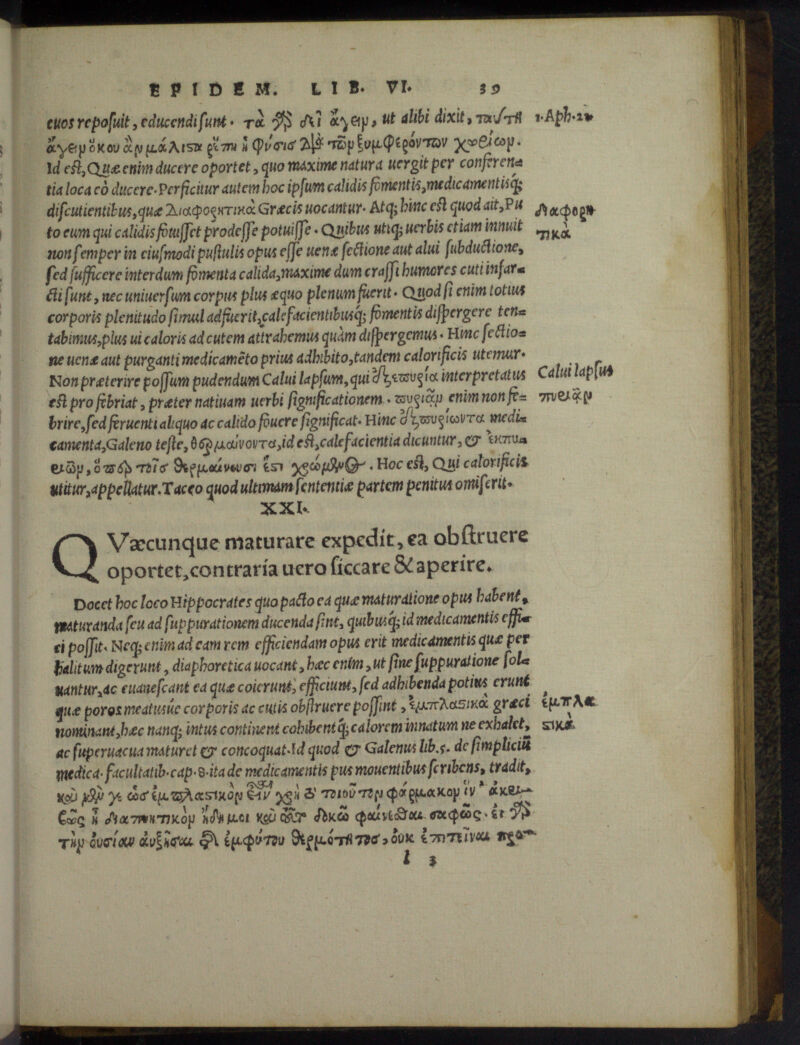 EPIDEM. LIB. VI. 39
cuos reposuit, educendi sunt. τὰ γὸ δεῖ ἄγειν, ut alibi dixit, ταύτῃ 1. Aph. 21
ἄγειν ὅκου ἂν μάλιστα ῥέπῃ ἡ φύσις διὰ τῶν ξυμφερόντων χωρίων.
Id est, Quæ enim ducere oportet, quo maxime natura uergit per conferen=
tia loca eò ducere. Perficitur autem hoc ipsum calidis fomentis, medicamentisq;
discutientibus, quæ Διαφορητικὰ Græcis uocantur. Atq; hinc est quod ait, Pu
Διαφορη
τικὰ
to eum qui calidis fouisset prodesse potuisse. Quibus utiq; uerbis etiam innuit
non semper in eiusmodi pustulis opus esse uenæ sectione aut alui subductione,
sed sufficere interdum fomenta calida, maxime dum crassi humores cuti infar=
cti sunt, nec uniuersum corpus plus æquo plenum fuerit. Quod si enim totius
corporis plenitudo simul adfuerit, calefacientibusq; fomentis dispergere ten=
tabimus, plus ui caloris ad cutem attrahemus quàm dispergemus. Hinc sectio=
ne uenæ aut purganti medicamēto prius adhibito, tandem calorificis utemur.
Non præterire possum pudendum Calui lapsum, qui διεπυρία interpretatus
Calui lapsus
est pro febriat, præter natiuam uerbi significationem. πυριᾶν enim non fe=
πυριᾶν
brire, sed feruenti aliquo ac calido fouere significat. Hinc διαπυριῶντα medi=
camenta, Galeno teste, θερμαίνοντα, id est, calefacientia dicuntur, & ἐκπυ=
ριῶν, ὅπερ τοῖς θερμαίνουσι ἐστι χρώμενος. Hoc est, Qui calorificis
utitur, appellatur. Taceo quod ultimam sententiæ partem penitus omiserit.
XXI.
QVæcunque maturare expedit, ea obstruere
oportet, contraria uero siccare & aperire.
Docet hoc loco Hippocrates quo pacto ea quæ maturatione opus habent,
maturanda seu ad suppurationem ducenda sint, quibusq; id medicamentis effi=
ci possit. Neq; enim ad eam rem efficiendam opus erit medicamentis quæ per
halitum digerunt, diaphoretica uocant, hæc enim, ut sine suppuratione sol=
uantur, ac euanescant ea quæ coierunt, efficiunt, sed adhibenda potius erunt
quæ poros meatusúe corporis ac cutis obstruere possint, ἐμπλαστικὰ græci
ἐμπλα
στικὰ
nominant, hæc nanq; intus continent cohibentq; calorem innatum ne exhalet,
ac superuacua maturet & concoquat. Id quod & Galenus lib. 5. de simplicium
medica. facultatib. cap. 8. ita de medicamentis pus mouentibus scribens, tradit,
καὶ μὲν γε ὡς ἐμπλαστικὸν εἶναι χρὴ τὸ τοιοῦτον φάρμακον ἵν᾽ ἀκρι=
βῶς ἤδη μοι καὶ δοκῶ φαίνεσθαι σαφῶς. ἐπὶ γὸ
τὴν οὐσίαν αὐξῆσαι τοῦ ἐμφύτου θερμότητος, οὐκ ἐπιτεῖναι προ=
l 3